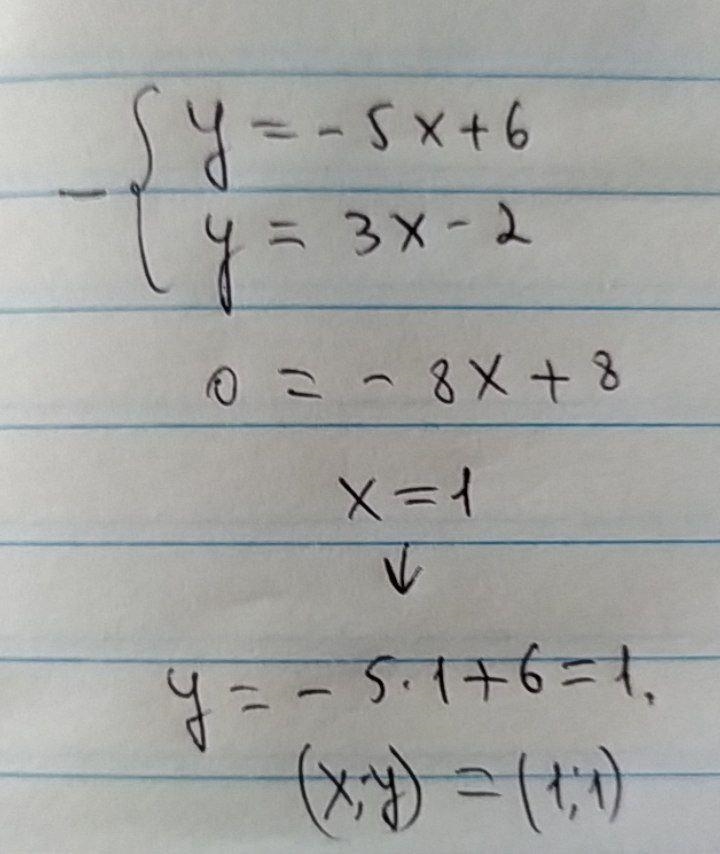 - { y = - 5x + 6
y = 3x - 2
0 = - 8x + 8
x = 1
↓
y = - 5 · 1 + 6 = 1.
(x; y) = (1; 1)